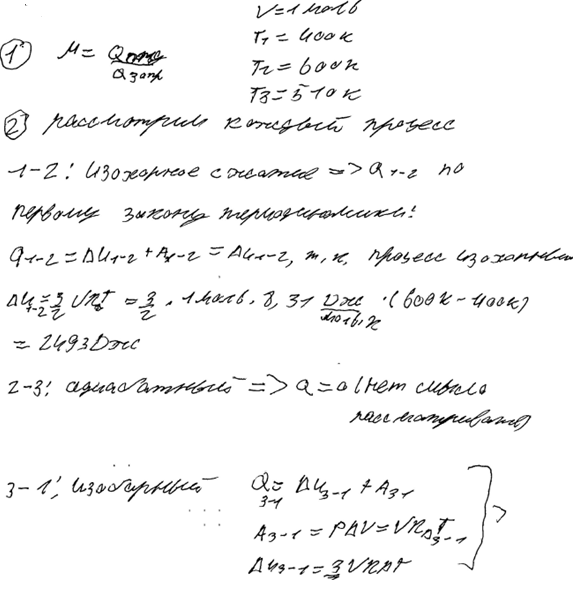 V=1 моль
T1=400К
T2=600К
T3=510К
1) М=Qпол/Qзатр
2) рассмотрим каждый процесс
1-2: изохорное сжатие => Q1-2 по
первому закону термодинамики:
Q1-2=ΔU1-2+A1-2=ΔU1-2, т.к. процесс изохорный
ΔU1-2=3/2 VRΔT=3/2·1моль·8,31 Дж/моль·К·(600К-400К)
=2493Дж
2-3: адиабатный => Q=0 (нет смысла
рассматривать)
3-1: изобарный Q3-1=ΔU3-1+A31
A3-1=PΔV=VRΔT3-1
ΔU3-1=3/2 VRΔT